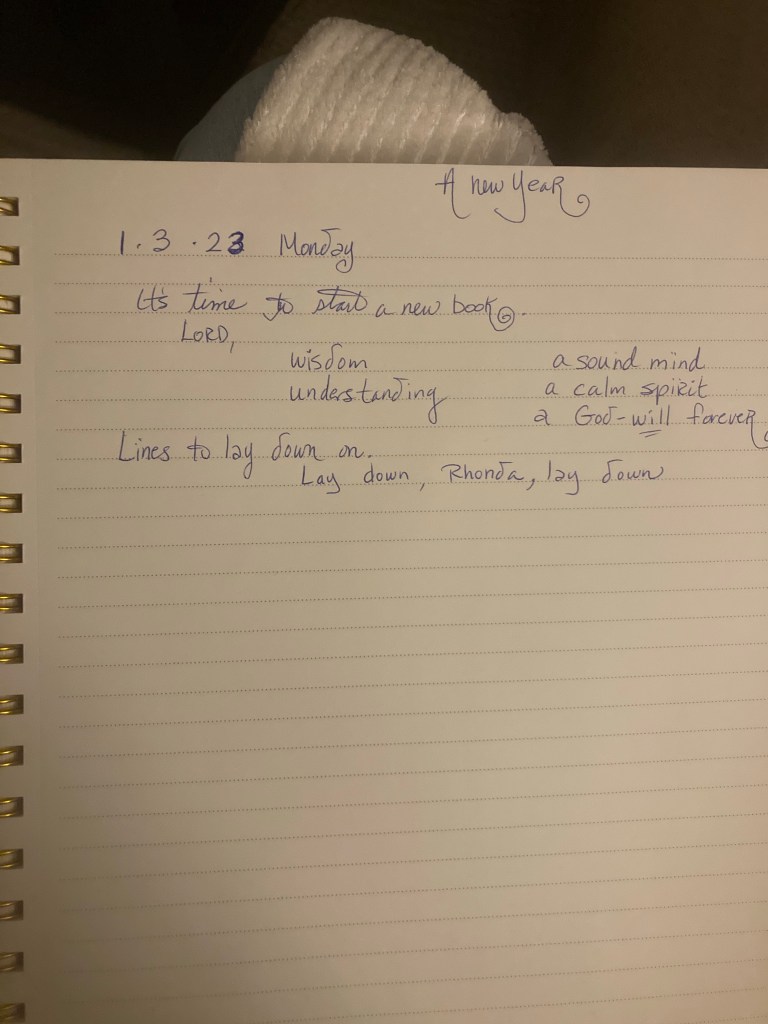 A new year
1.3.23 Monday
It's time to start a new book.
LORD,
wisdom a sound mind
understanding a calm spirit
a God-will forever
Lines to lay down on.
Lay down, Rhonda, lay down